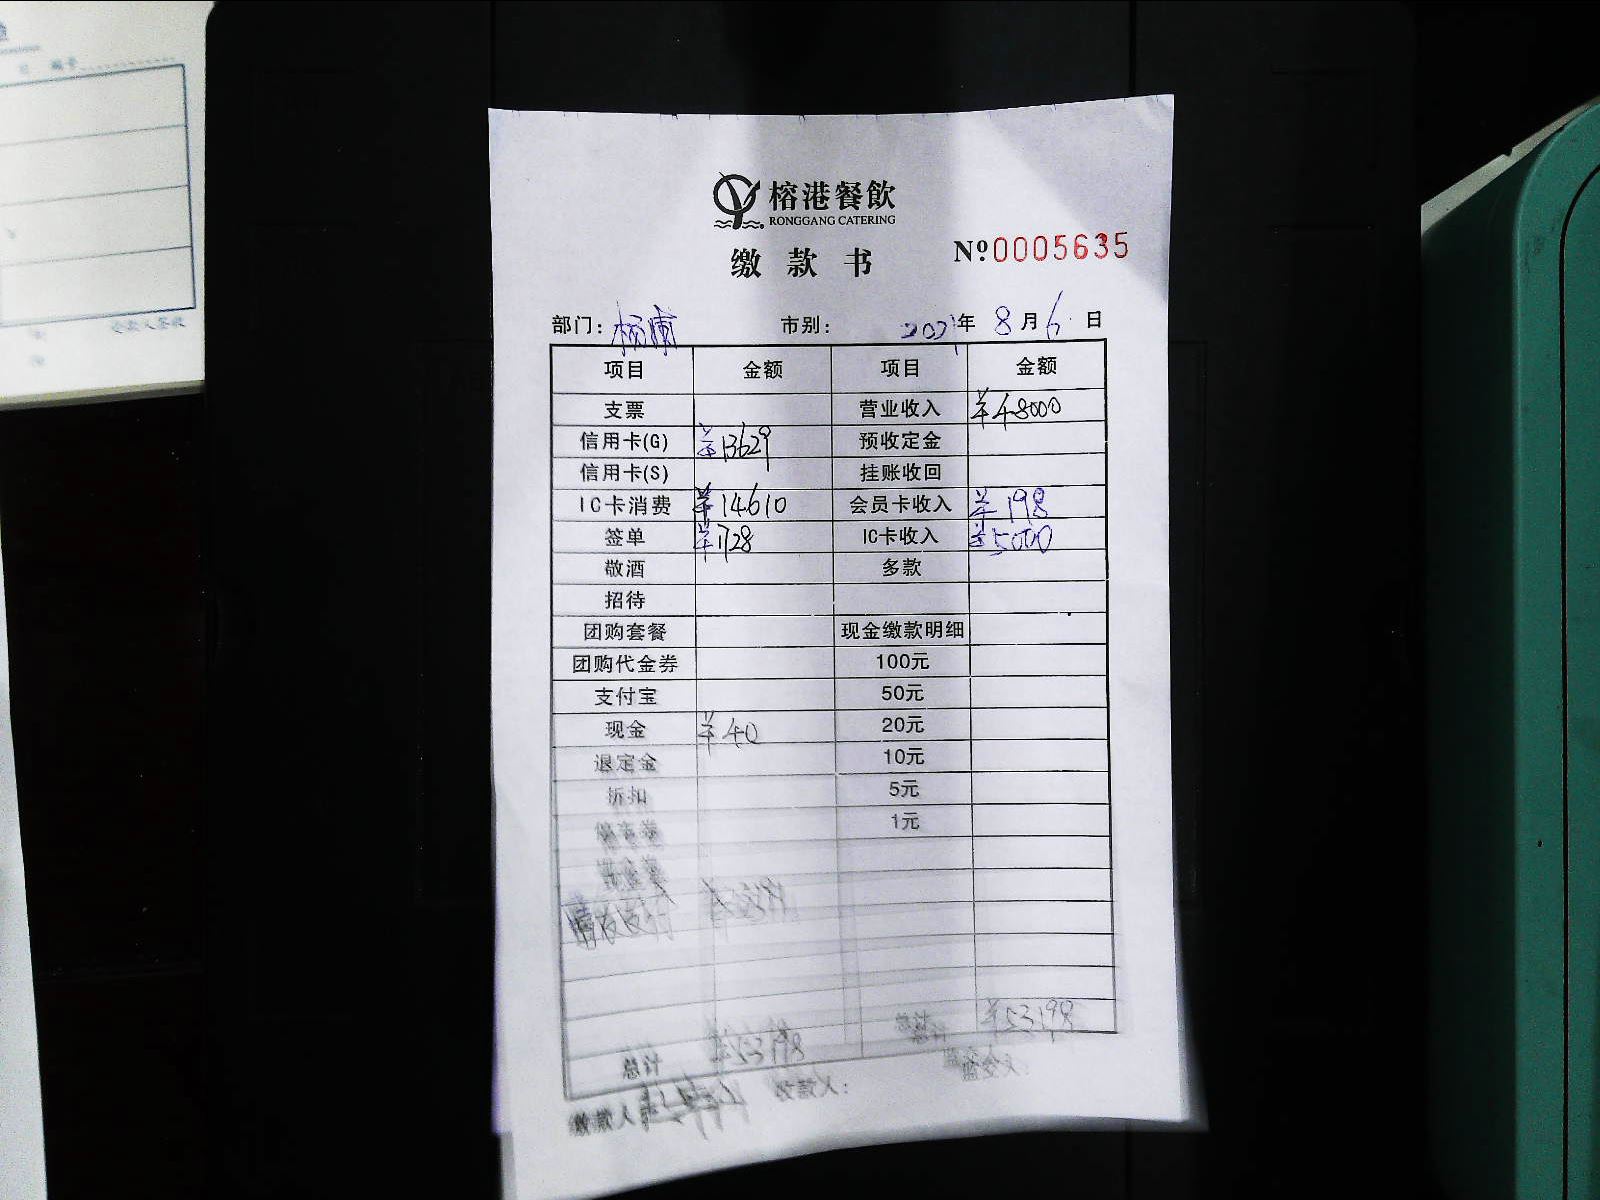 榕港餐飲
RONGGANG CATERING
缴款书
Nº0005635
部门: 杨浦 市别: 2021年 8月 6日
项目 金额 项目 金额
支票 营业收入 ¥48000
信用卡(G) ¥13629 预收定金
信用卡(S) 挂账收回
IC卡消费 ¥14610 会员卡收入 ¥198
签单 ¥1728 IC卡收入 ¥5000
敬酒 多款
招待
团购套餐 现金缴款明细
团购代金券 100元
支付宝 50元
现金 ¥40 20元
退定金 10元
折扣 5元
1元
总计 ¥53198 总计 ¥53198
缴款人 收款人: 监交人: